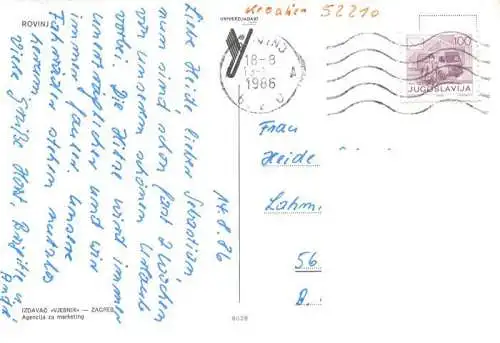 ROVINJ
Liebe Heide, lieber Sebastian,
nun sind schon fast 2 Wochen
von unserem schönen Urlaub
vorbei. Die Hitze wird immer
unerträglicher und wir
immer fauler. Unsere
Fahrräder stehen nutzlos
herum.
Viele Grüße Horst, Brigitte u.
André
14.8.86
IZDAVAČ »VJESNIK« — ZAGREB
Agencija za marketing
UNIVERZIJADA'87
8028
Kroatien 52210
ROVINJ
18-8
1986
100
JUGOSLAVIJA
Frau
Heide
Lahm
56